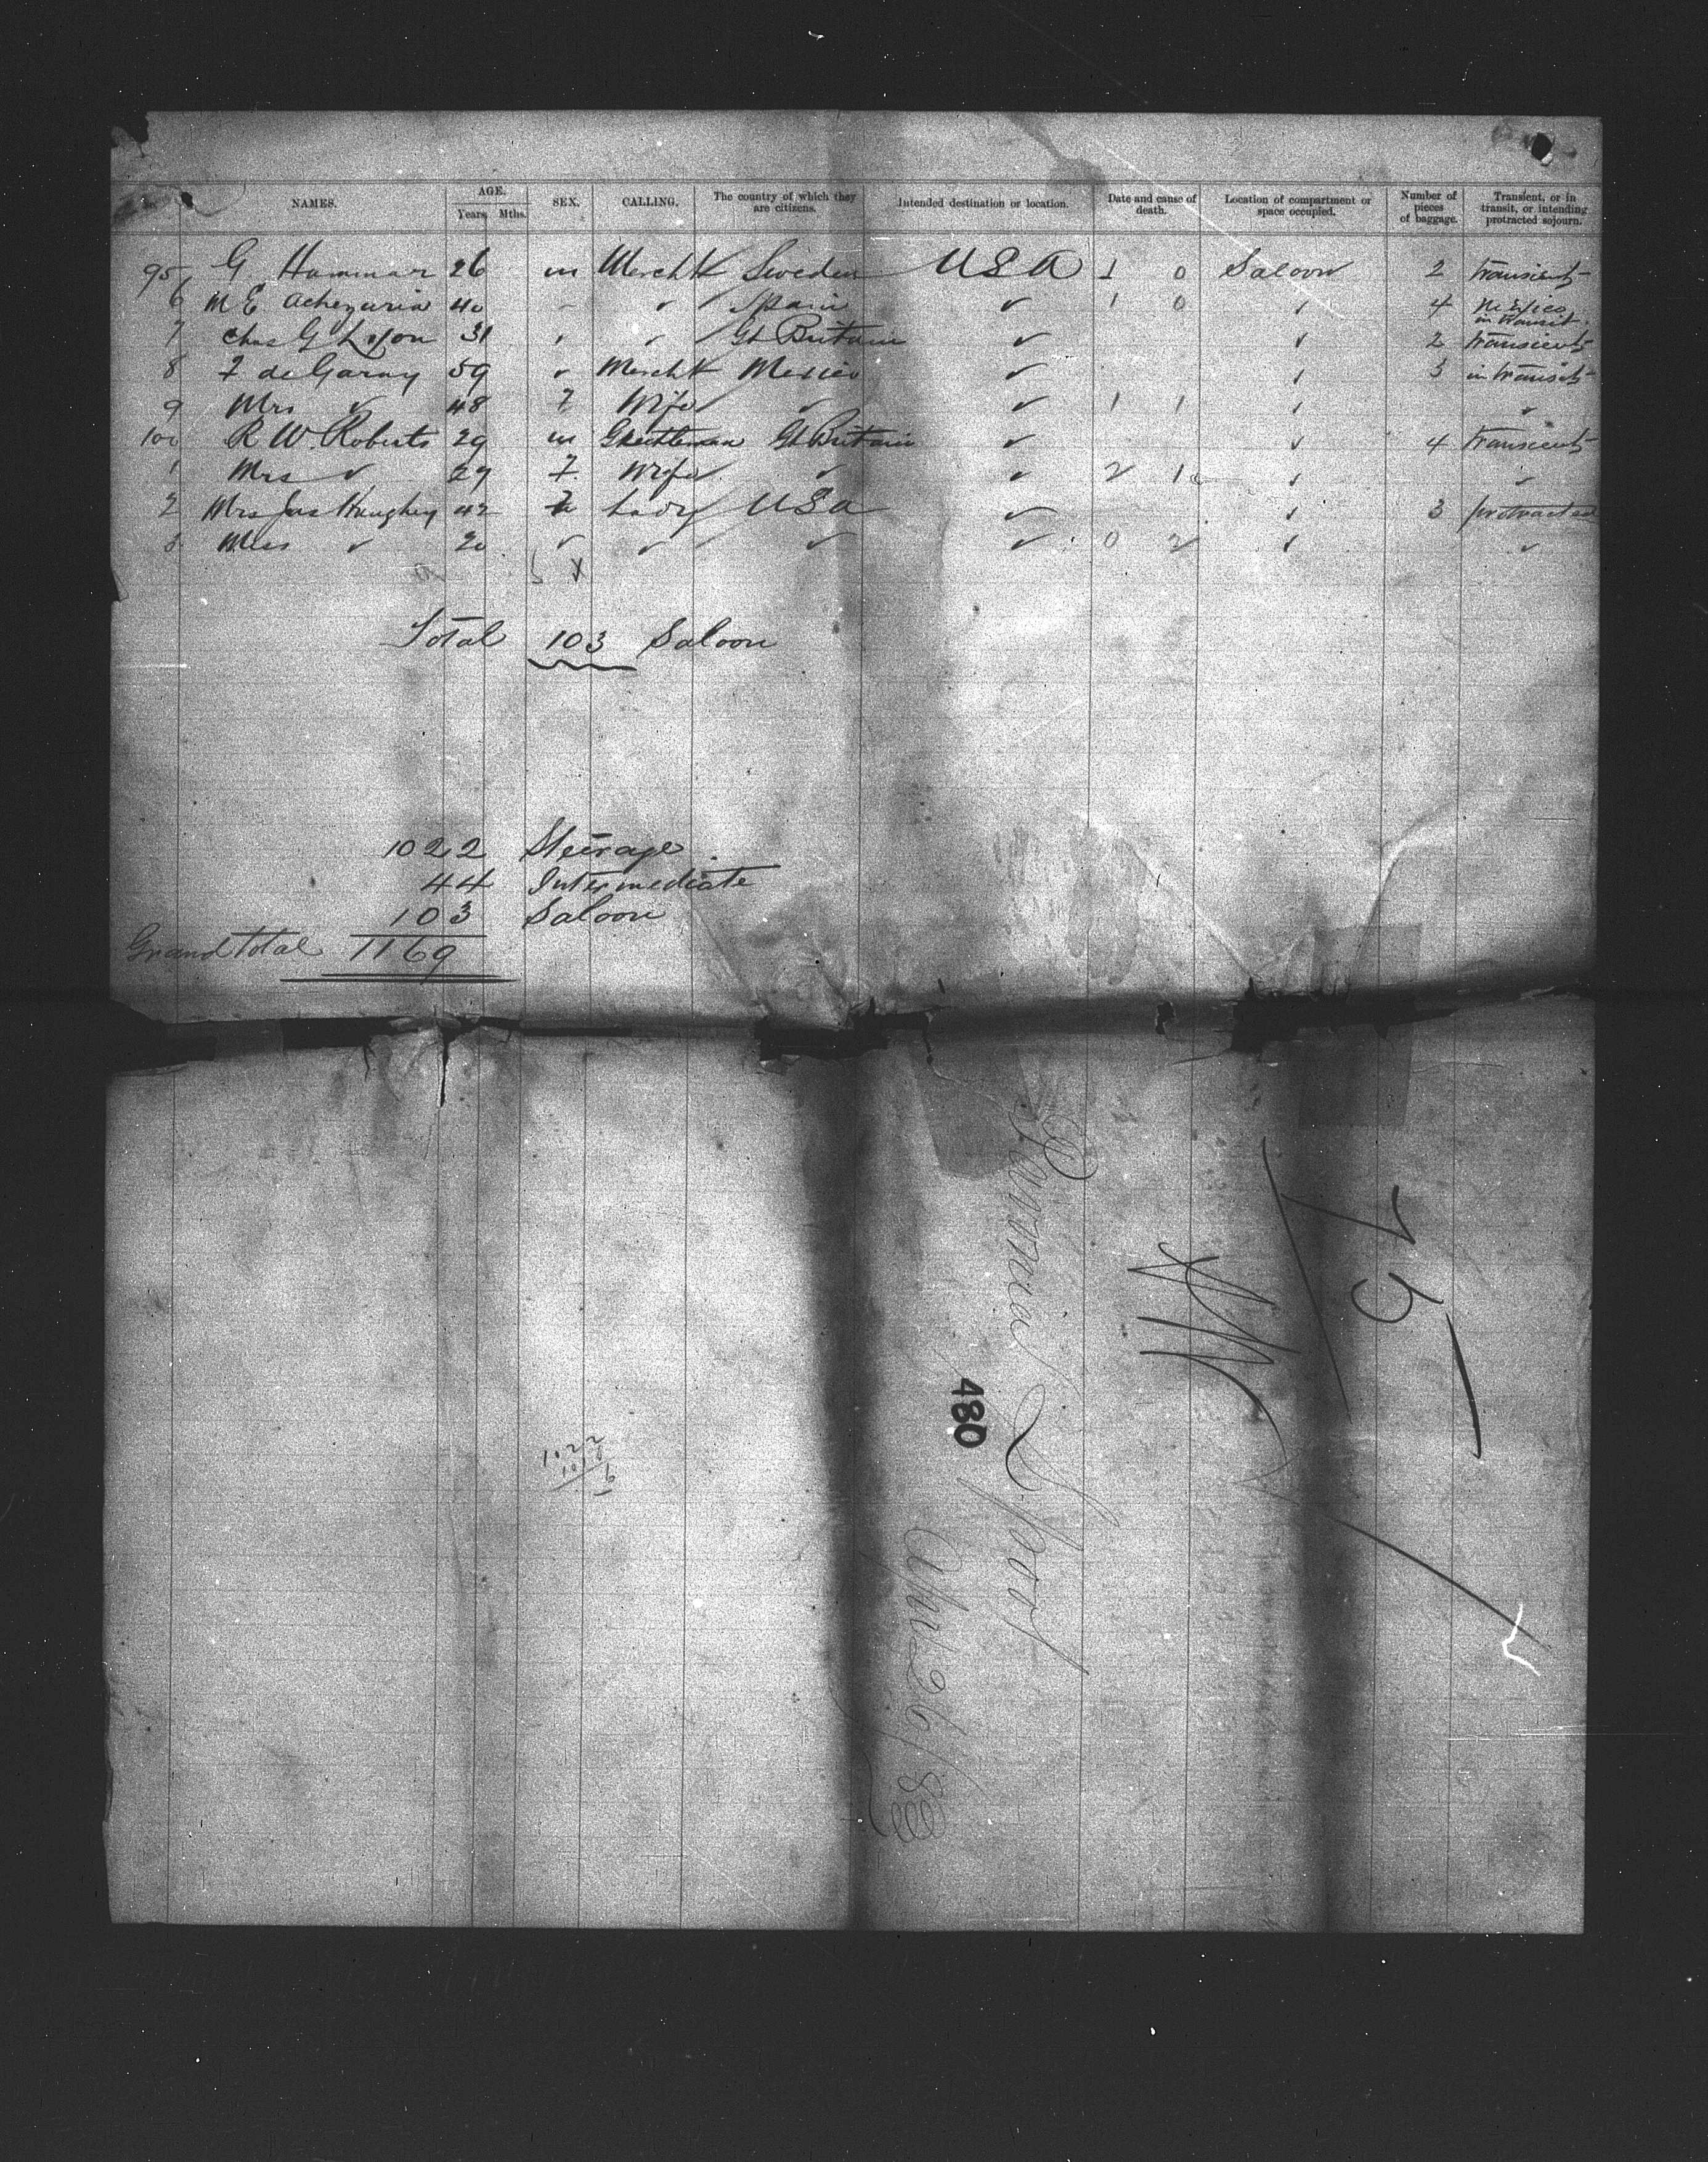 NAMES. AGE. Years Mths. SEX. CALLING. The country of which they are citizens. Intended destination or location. Date and cause of death. Location of compartment or space occupied. Number of pieces of baggage. Transient, or in transit, or intending protracted sojourn.
95 G Hammar 26 m Mercht Sweden USA 1 0 Saloon 2 transient
6 M E 40 ✓ Spain ✓ 1 0 ✓ 4 Mexico in transit
7 Chas G Lyon 31 ✓ Gt Britain ✓ ✓ 2 transient
8 F de Garay 59 ✓ Mercht Mexico ✓ ✓ 3 in transit
9 Mrs ✓ 48 F Wife ✓ ✓ 1 1 ✓ ✓
100 R W. Roberts 29 m Gentleman Gt Britain ✓ ✓ 4 transient
1 Mrs ✓ 29 F Wife ✓ ✓ 2 1 ✓ ✓
2 Mrs Jas Haughey 42 F Lady USA ✓ ✓ 3 protracted
3 Miss ✓ 20 ✓ ✓ ✓ ✓ 0 2 ✓ ✓
Total 103 Saloon
1022 Steerage
44 Intermediate
103 Saloon
Grand total 1169
75
L'pool
480
April 26/88
1022